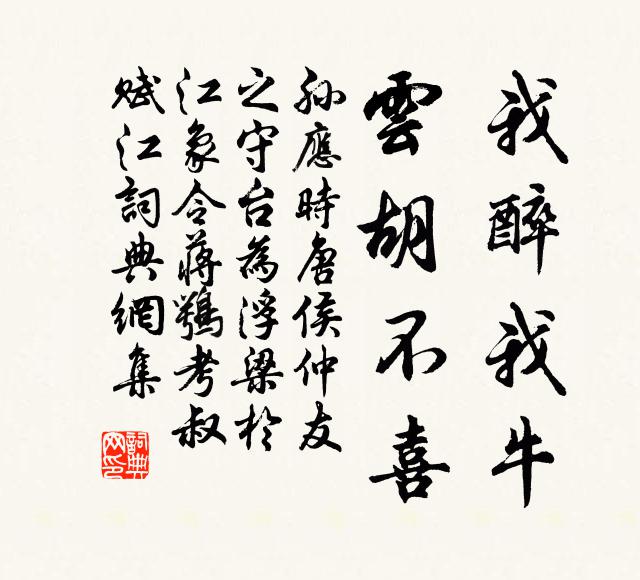 我醉我牛
雲胡不喜
孙應時唐侯仲友
之守台為浮梁於
江象令蔣鶚考叔
赋江詞典網集
詞典网印